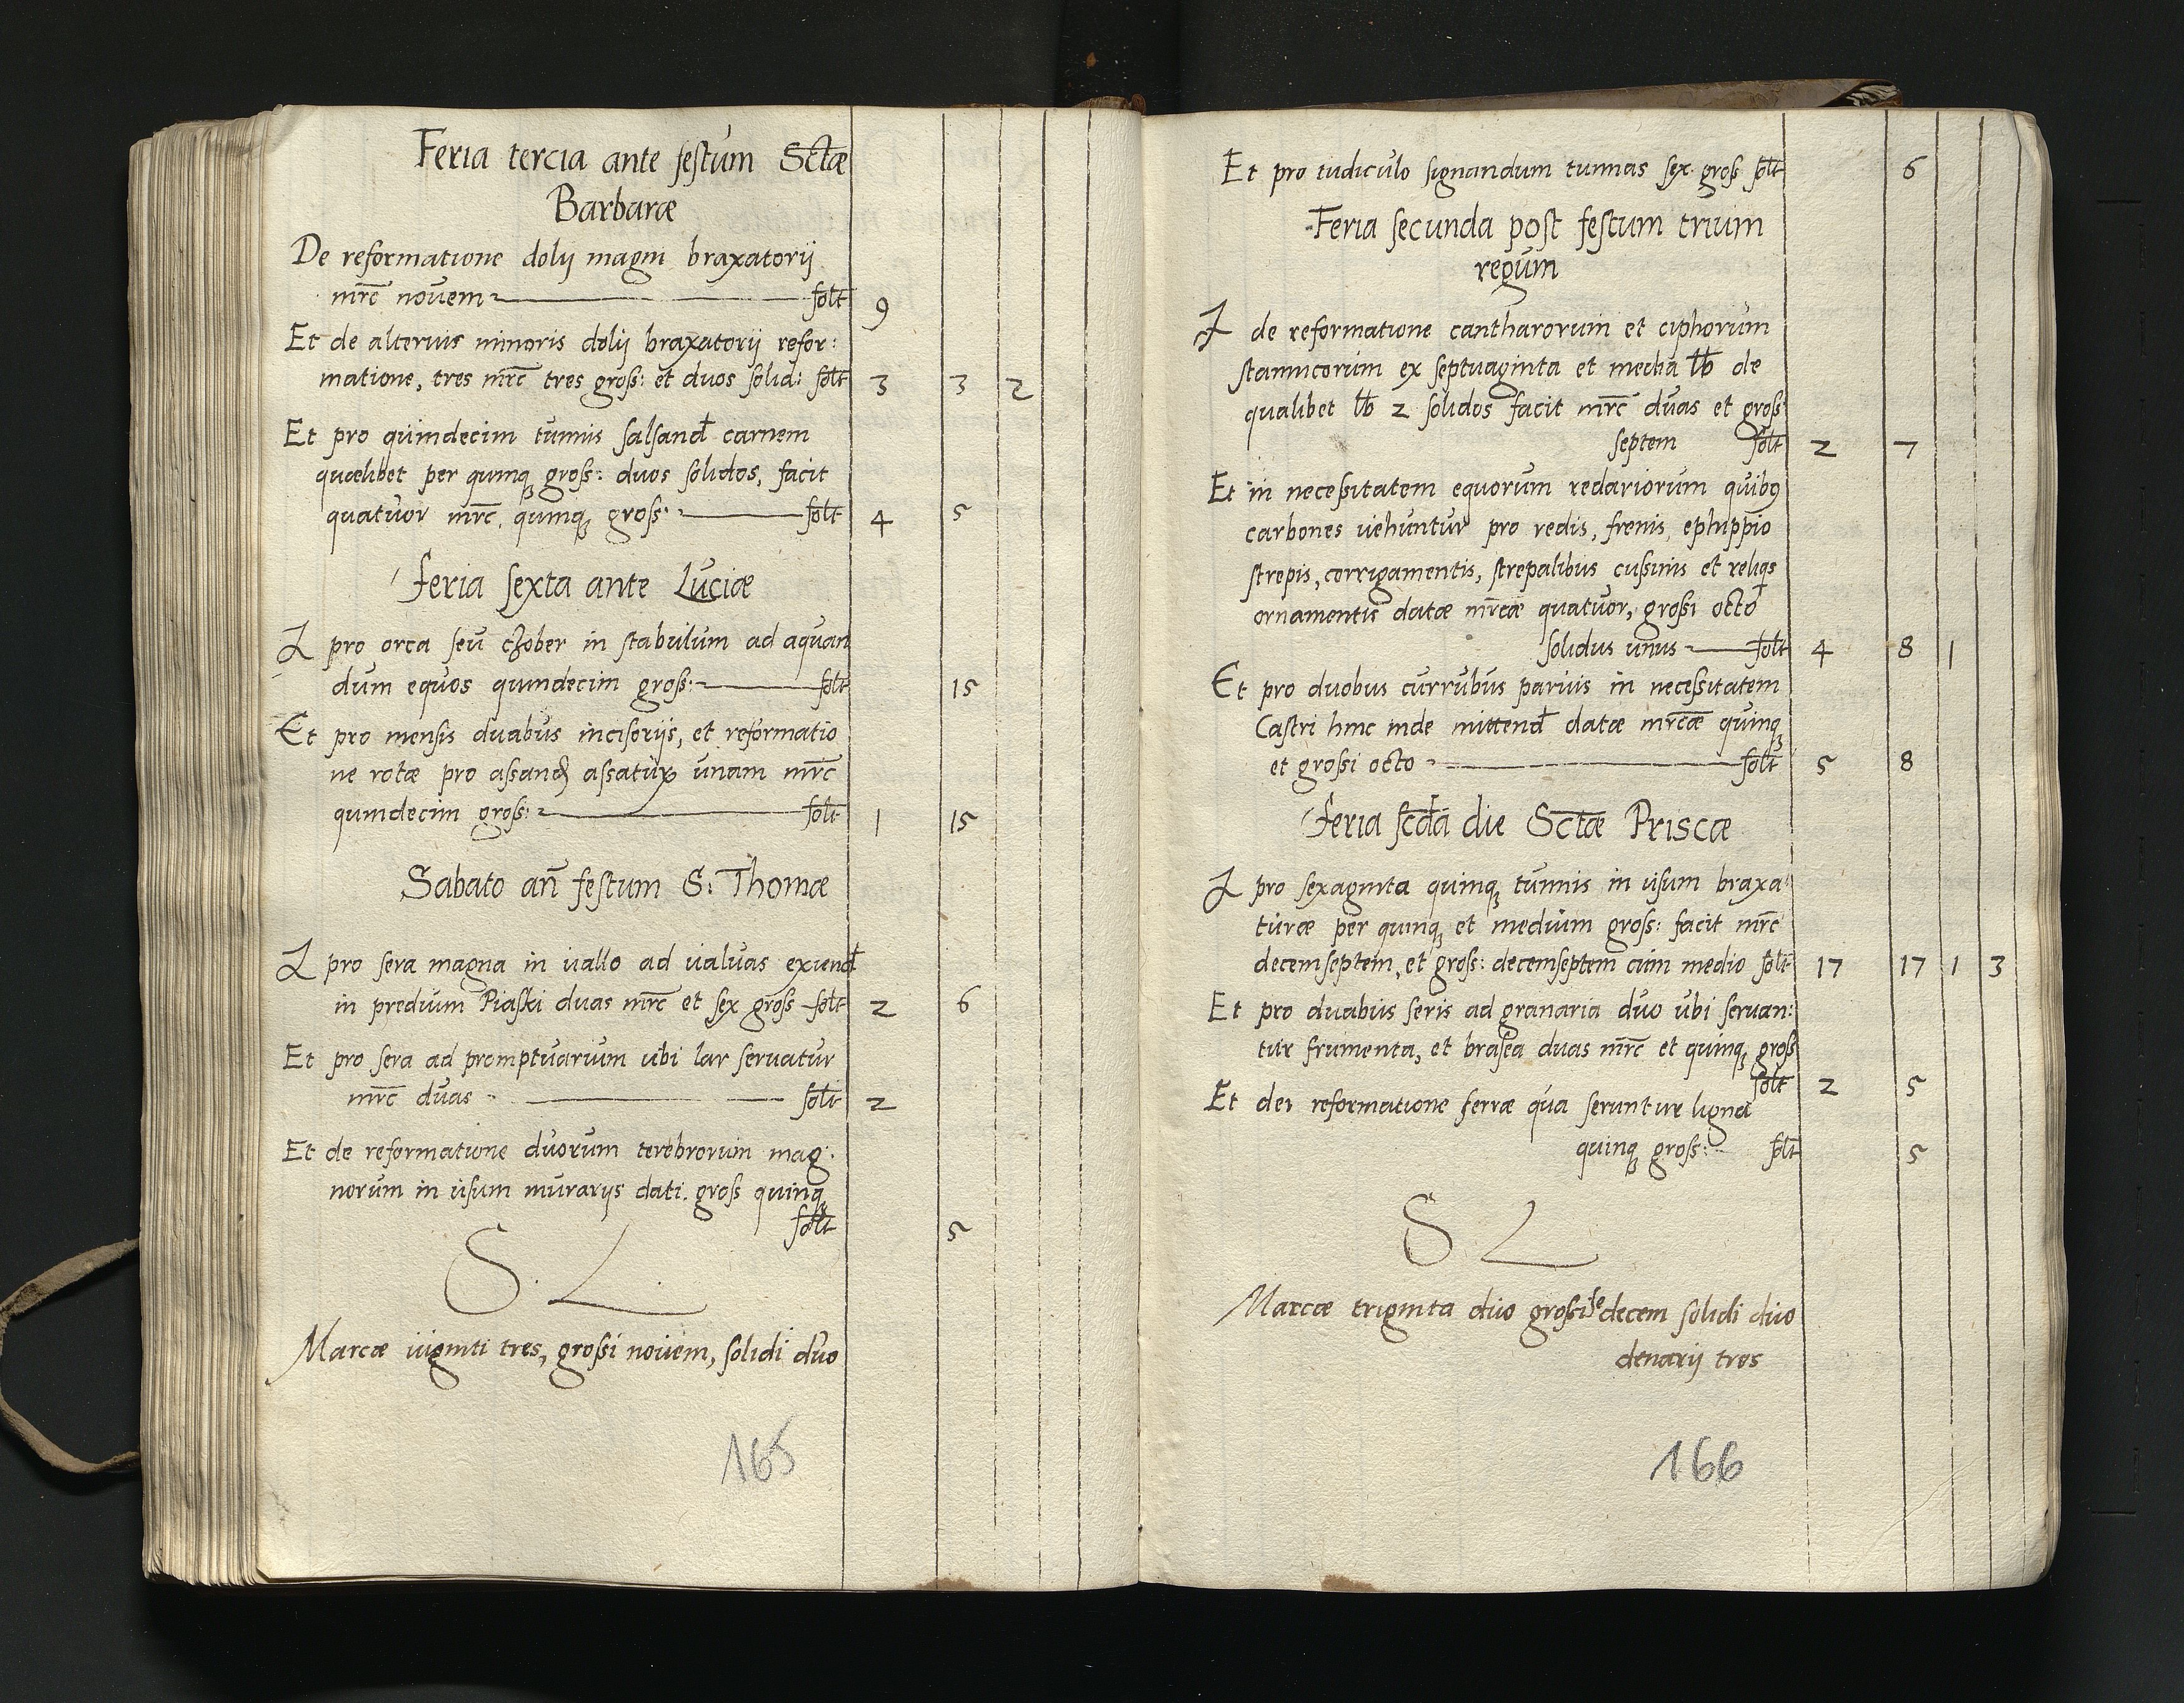 Feria tercia ante festum Sctæ
Barbaræ
De reformatione dolij magni braxatorij
mrc novem solt 9
Et de alterius minoris dolij braxatorij refor:
matione, tres mrc tres gross: et duos solid: solt 3 3 2
Et pro quindecim tunnis salsand carnem
quælibet per quinq gross: duos solidos, facit
quatuor mrc, quinq gross: solt 4 5
Feria sexta ante Luciæ
I pro orca seu czober in stabulum ad aquan
dum equos quindecim gross: solt 15
Et pro mensis duabus incisorijs, et reformatio
ne rotæ pro assand assatur unam mrc
quindecim gross: solt 1 15
Sabato an festum S: Thomæ
I pro sera magna in vallo ad valvas exeund
in predium Piaski duas mrc et sex gross solt 2 6
Et pro sera ad promptuarium ubi lar servatur
mrc duas solt 2
Et de reformatione duorum terebrorum mag:
norum in usum murarijs dati. gross quinq
solt 5
S. L
Marcæ viginti tres, grossi novem, solidi duo
165
Et pro iudiculo signandum tunnas sex gross solt 6
Feria secunda post festum trium
regum
I de reformatione cantharorum et ciphorum
stannicorum ex septuaginta et media lb de
qualibet lb 2 solidos facit mrc duas et gross
septem solt 2 7
Et in necessitatem equorum redariorum quib9
carbones vehuntur pro redis, frenis, ephippio
strepis, corrigamentis, strepalibus cussinis et reliqs
ornamentis datæ mrcæ quatuor, grossi octo
solidus unus solt 4 8 1
Et pro duobus currubus parvis in necessitatem
Castri hinc inde mittend datæ mrcæ quinq
et grossi octo solt 5 8
Feria scda die Sctæ Priscæ
I pro sexaginta quinq tunnis in usum braxa:
turæ per quinq et medium gross: facit mrc
decemseptem, et gross: decemseptem cum medio solt 17 17 1 3
Et pro duabus seris ad granaria duo ubi servan:
tur frumenta, et brasea duas mrc et quinq gross
solt 2 5
Et de reformatione serræ qua seruntur ligna
quinq gross: solt 5
S L
Marcæ triginta duo grossi se decem solidi duo
denarij tres
166